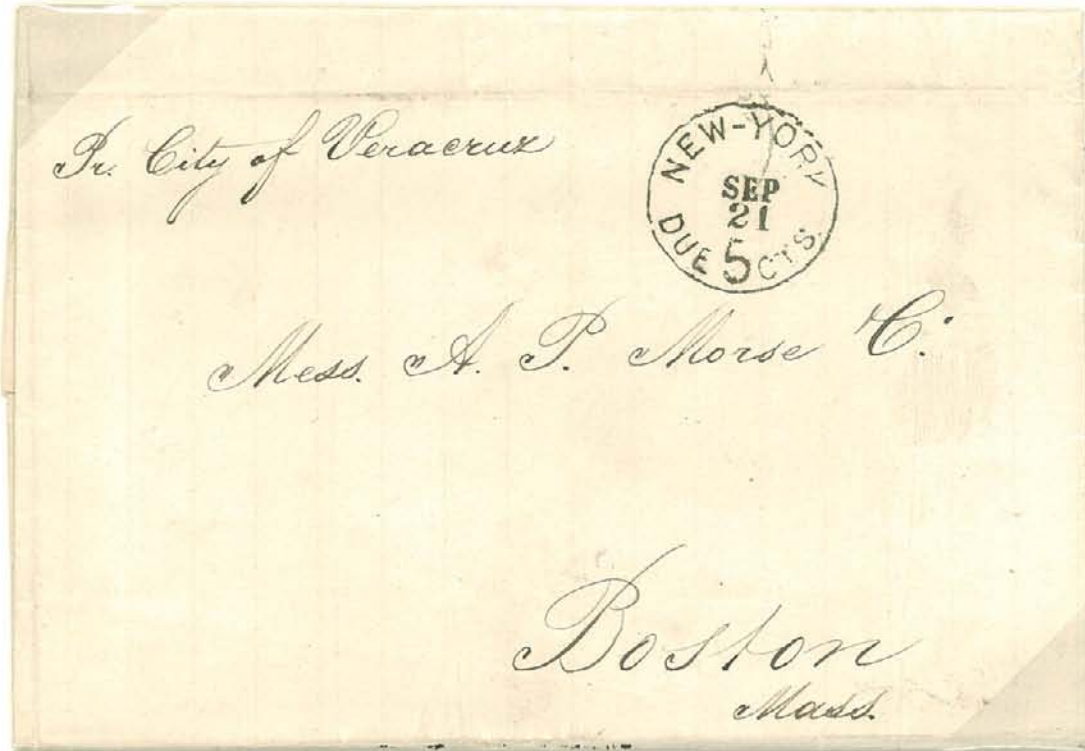 Pr. City of Veracruz
NEW-YORK
SEP
21
DUE 5 CTS.
Mess. A. P. Morse C.
Boston
Mass.